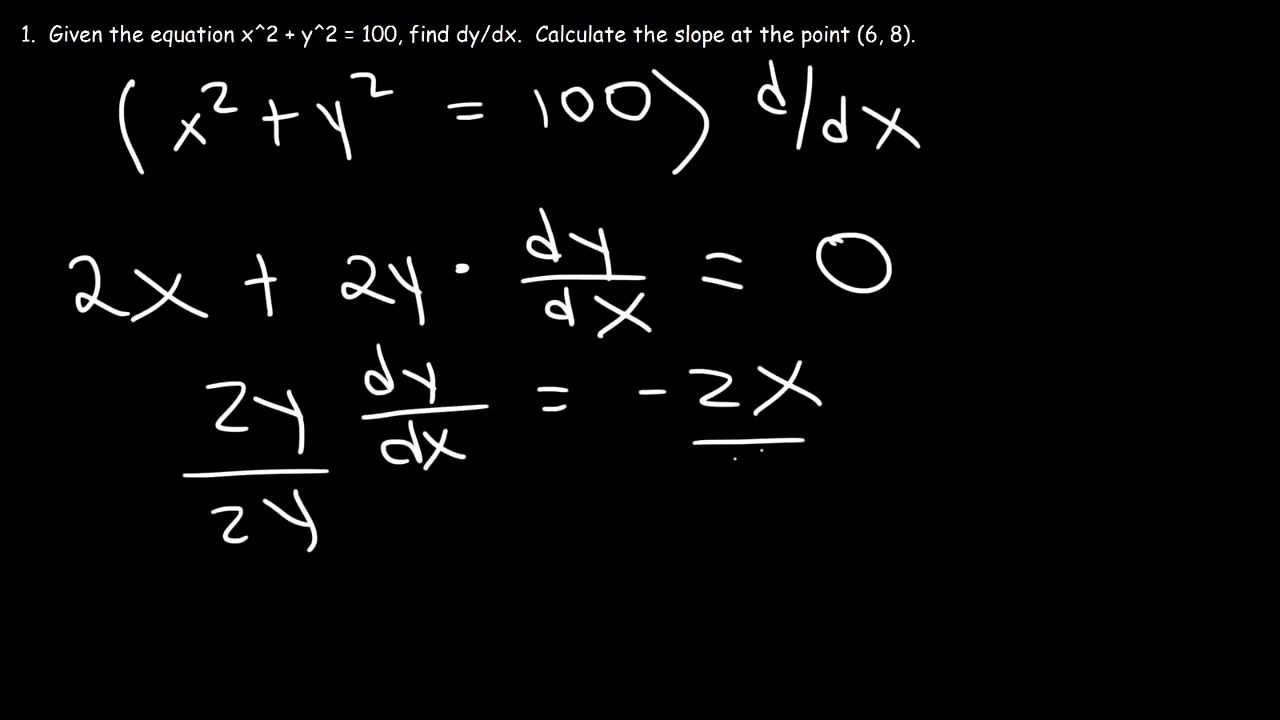 1. Given the equation x^2 + y^2 = 100, find dy/dx. Calculate the slope at the point (6, 8).
(x² + y² = 100) d/dx
2x + 2y · dy/dx = 0
2y/2y dy/dx = -2x/